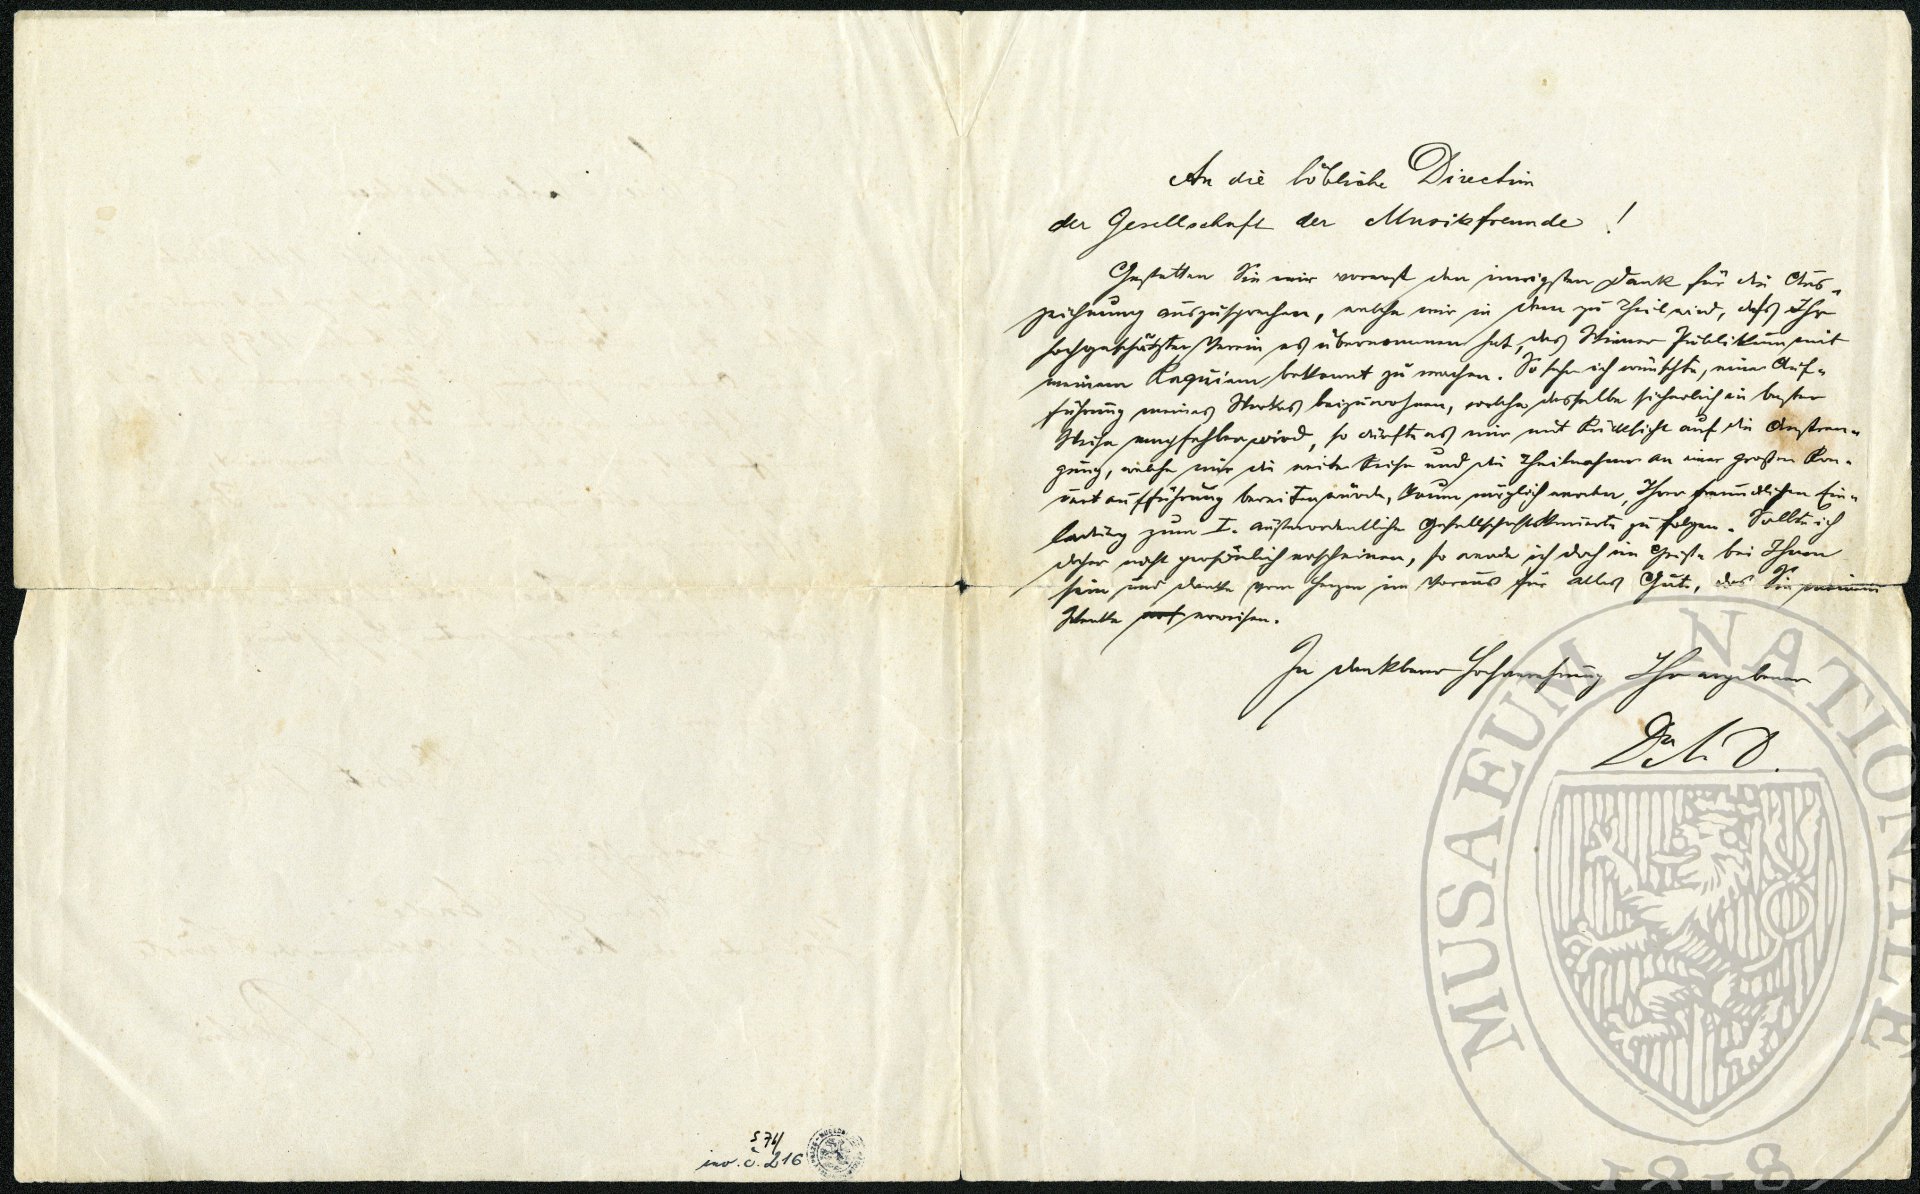 An die löbliche Direction
der Gesellschaft der Musikfreunde!
Gestatten Sie mir vorerst den innigsten Dank für die Aus-
zeichnung auszusprechen, welche mir in dem zu Theil wird, dass Ihr
hochgeschätzter Verein es übernommen hat, das Wiener Publikum mit
meinem Requiem bekannt zu machen. So sehr ich wünschte, einer Auf-
führung meines Werkes beizuwohnen, welche dasselbe sicherlich in bester
Weise empfehlen wird, so dürfte es mir mit Rücksicht auf die Anstren-
gung, welche mir die weite Reise und die Theilnahme an einer großen Kon-
zertaufführung bereiten würde, kaum möglich werden, Ihrer freundlichen Ein-
ladung zum I. außerordentliche Gesellschaftskonzerte zu folgen. Sollte ich
daher nicht persönlich erscheinen, so werde ich doch im Geiste bei Ihnen
sein und danke vom Herzen im Voraus für alles Gute, das Sie meinem
Werke erweisen.
In dankbarer Hochverehrung Ihr ergebener
Dr A. D.
S 74/
inv. č. 216
MUSAEUM NATIONALE
1818